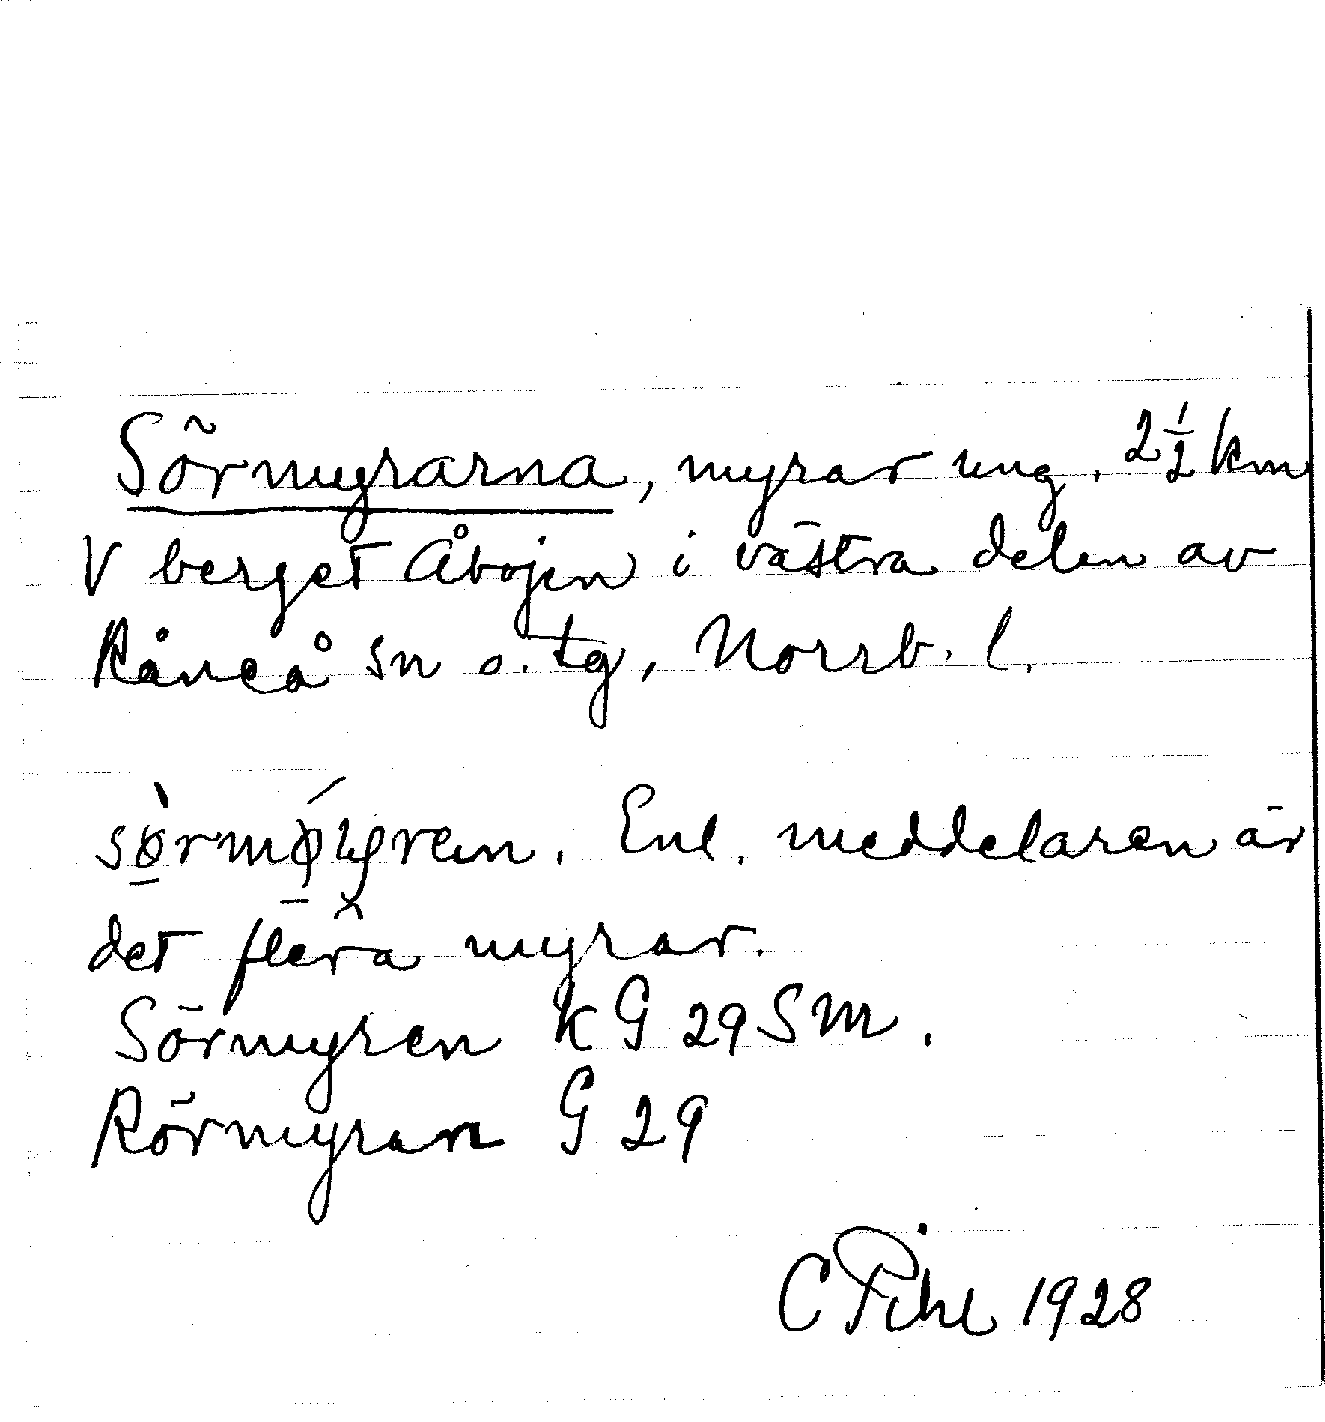 Sörmyrarna, myrar ung. 2 1/2 km
V berget Åbojen i västra delen av
Råneå sn o. tg, Norrb. l.
Enl. meddelaren är
det flera myrar.
Sörmyren kG 29 SM.
Rörmyran G 29
C Pihl 1928